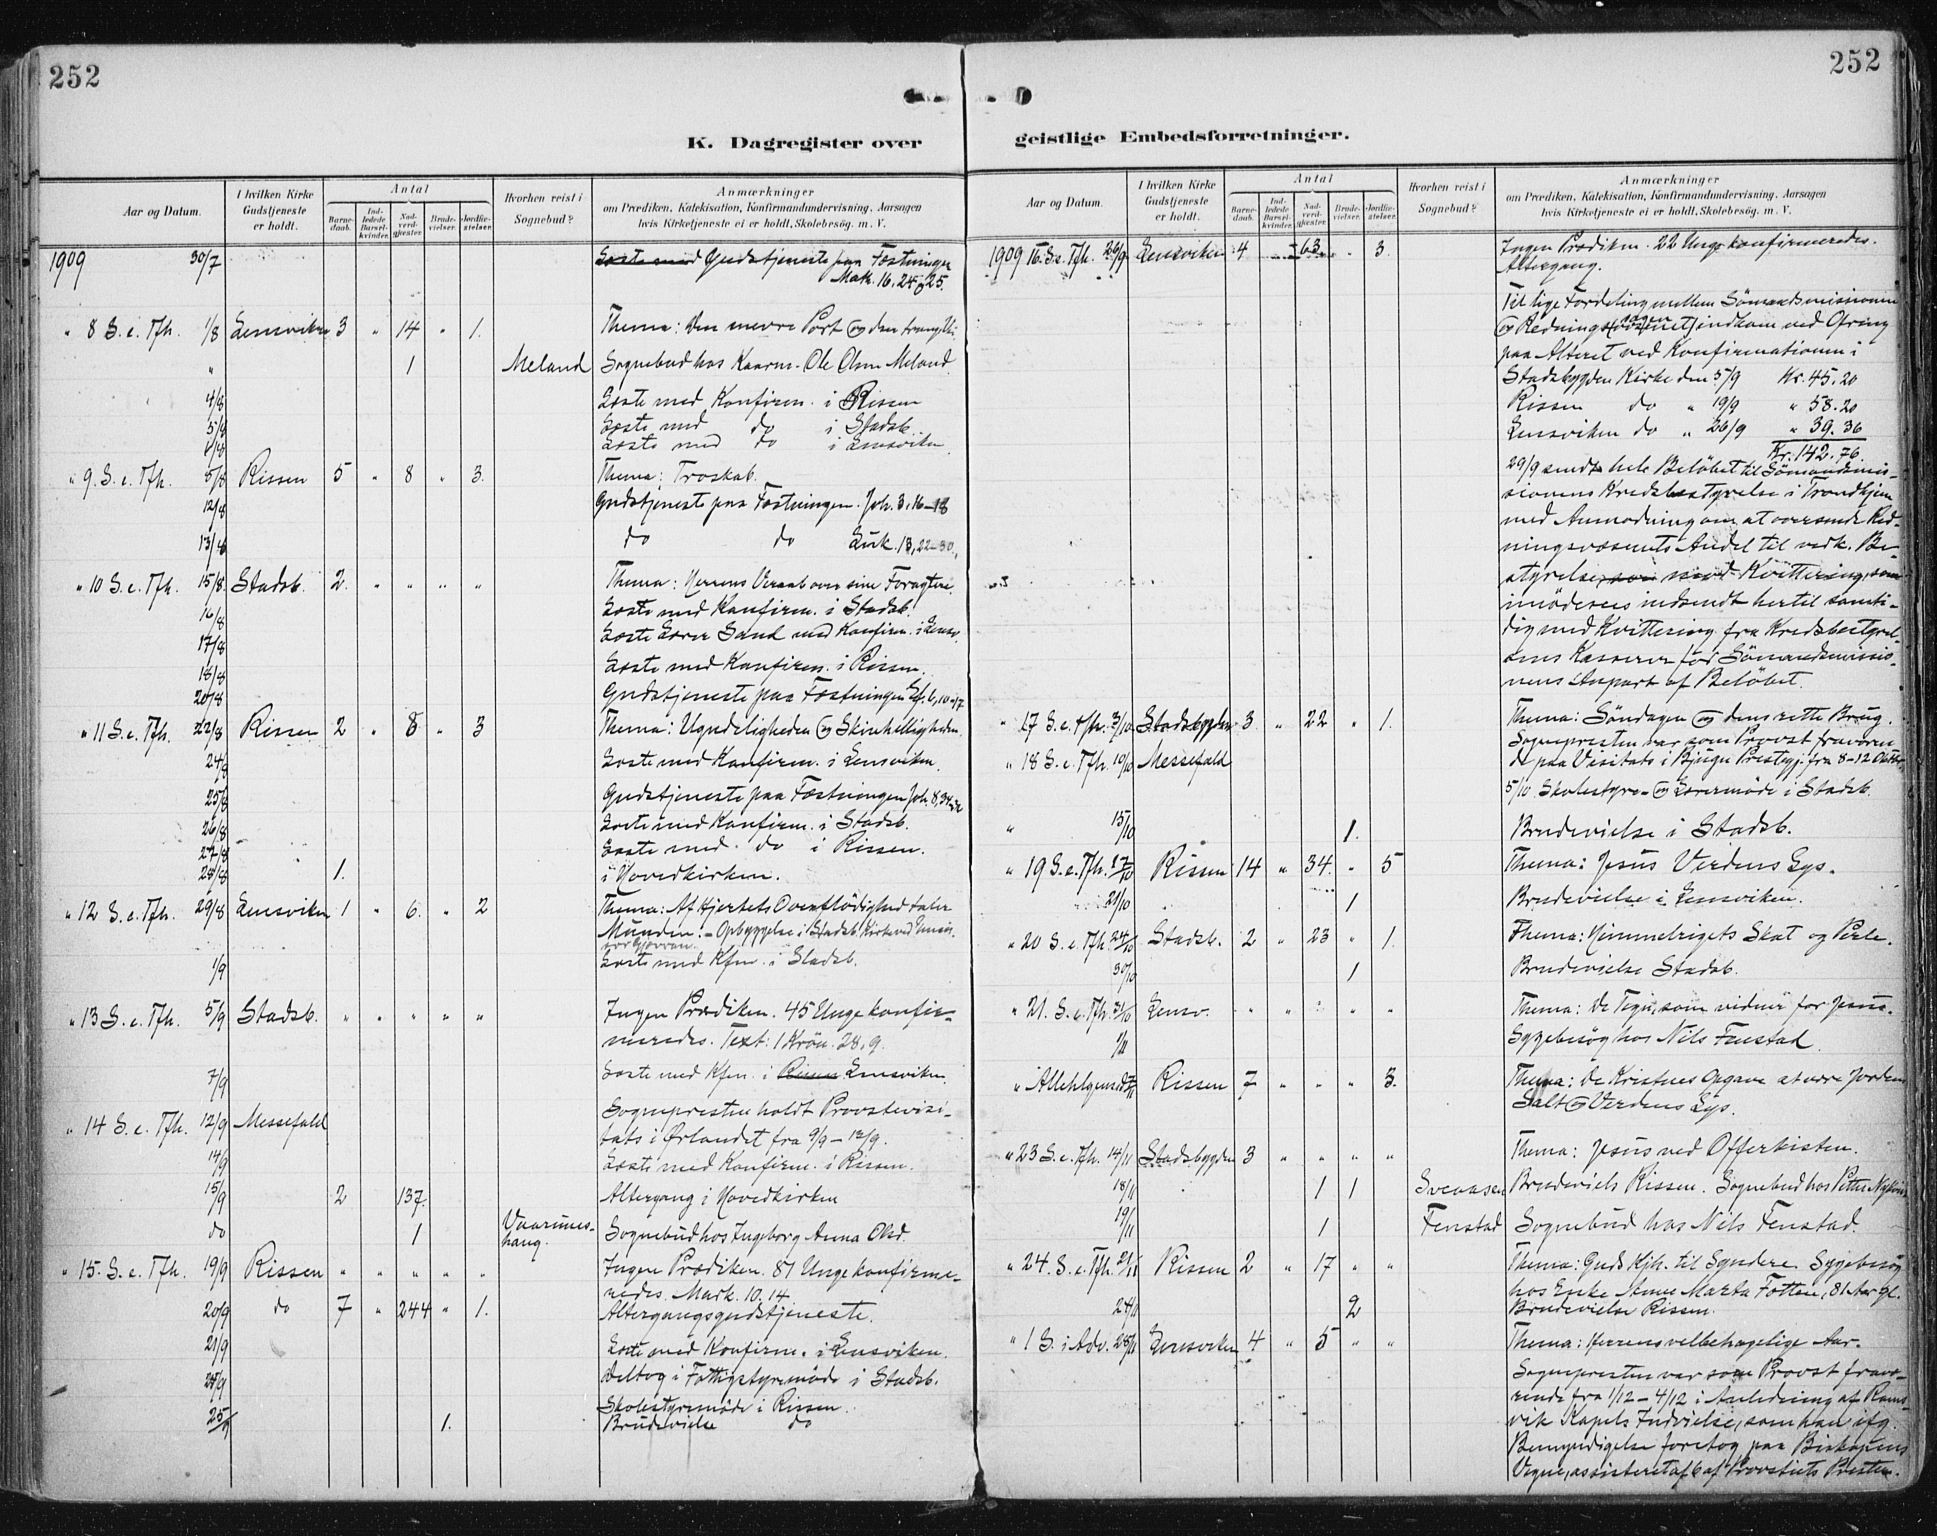 252
K. Dagregister over
Aar og Datum.
I hvilken Kirke Gudstjeneste er holdt.
Antal
Barne-daab.
Ind-ledede Barsel-kvinder.
Nad-verd-gjester.
Brude-vielser.
Jordfæ-stelser.
Hvorhen reist i Sognebud?
Anmærkninger
om Prædiken, Katekisation, Konfirmandundervisning, Aarsagen
hvis Kirketjeneste ei er holdt, Skolebesøg. m. V.
1909 30/7 Læste med Gudstjeneste paa Fæstningen
Mark. 16, 24 25.
" 8 S. e. Tfh. 1/8 Lensviken 3 " 14 " 1. Thema: Den snevre Port og den trange Vei
" 1 Meland Sognebud hos Kaarm. Ole Olsen Meland.
4/8 Læste med Konfirm. i Rissen
5/8 Læste med do i Stadsb.
6/8 Læste med do i Lensviken
" 9 S. e. Tfh. 8/8 Rissen 5 " 8 " 3. Thema: Troskab.
12/8 Gudstjeneste paa Fæstningen. Joh. 3, 16-18
13/8 do do Luk. 13, 22-30.
" 10 S. e. Tfh. 15/8 Stadsb. 2. " " " " Thema: Herrens Veraab over sine Foragtere.
16/8 Læste med Konfirm. i Stadsb.
17/8 Læste Lærer Sand med Konfirm. i Lensv.
18/8 Læste med Konfirm. i Rissen.
20/8 Gudstjeneste paa Fæstningen Ef. 6, 10-17
" 11 S. e. Tfh. 22/8 Rissen 2 " 8 " 3 Thema: Ugudeligheden og Skinhelligheden.
24/8 Læste med Konfirm. i Lensviken.
25/8 Gudstjeneste paa Fæstningen Joh. 8, 34
26/8 Læste med Konfirm. i Stadsb.
27/8 Læste med do i Rissen.
28/8 1. i Hovedkirken.
" 12 S. e. Tfh. 29/8 Lensviken 1 " 6. " 2 Thema: Af Hjertets Overflødighed taler
Munden. - Opbyggelse i Stadsb. Kirke ved
1/9 Læste med Kfm. i Stadsb.
" 13 S. e. Tfh. 5/9 Stadsb. " " " " " Ingen Prædiken. 45 Unge konfir-
meredes. Text: 1 Krøn. 28, 9.
7/9 Læste med Kfm. i Rissen Lensviken.
" 14 S. e. Tfh. 12/9 Messefald Sognepresten holdt Provstevisi-
tats i Ørlandet fra 9/9 - 12/9.
14/9 Læste med Konfirm. i Rissen.
15/9 2 137. Altergang i Hovedkirken
do 1 Vaarnes-
haug. Sognebud hos Ingeborg Anna Olsd.
" 15. S. e. Tfh. 19/9 Rissen " " " " " Ingen Prædiken. 87 Unge konfirme-
redes. Mark. 10, 14.
20/9 do 7 " 244 " 1. Altergangsgudstjeneste.
21/9 Læste med Konfirm. i Lensviken.
Deltog i Fattigstyremøde i Stadsb.
Skolestyremøde i Rissen.
25/9 1. Brudevielse do
252
geistlige Embedsforretninger.
Aar og Datum.
I hvilken Kirke Gudstjeneste er holdt.
Antal
Barne-daab.
Ind-ledede Barsel-kvinder.
Nad-verd-gjester.
Brude-vielser.
Jordfæ-stelser.
Hvorhen reist i Sognebud?
Anmærkninger
om Prædiken, Katekisation, Konfirmandundervisning, Aarsagen
hvis Kirketjeneste ei er holdt, Skolebesøg. m. V.
1909 16. S. e. Tfh. 26/9 Lensviken 4 163 " 3. Ingen Prædiken. 22 Unge konfirmeredes.
Altergang.
Til lige Fordeling mellem Sømandsmissionen
og Rednings indkom ved Ofring
paa Alteret ved Konfirmationen i
Stadsbygden Kirke den 5/9 Kr. 45.20
Rissen do " 19/9 " 58.20
Lensviken do " 26/9 " 39.36
Kr. 142.76.
29/9 sendt hele Beløbet til Sømandsmis-
sionens Kredsbestyrelse i Trondhjem
med Anmodning om at oversende Red-
ningsvæsenets Andel til vedk. Be-
styrelse, som mod Kvittering, som
imødesees indsendt hertil samti-
dig med Kvittering fra Kredsbestyrel-
sens Kasserer for Sømandsmissio-
nens Anpart af Beløbet.
" 17 S. e. Tfh. 3/10 Stadsbygden 3 " 22 " 1. Thema: Søndagen og dens rette Brug.
Sognepresten var som Provst fraværen-
" 18 S. e. Tfh. 10/10 Messefald de paa Visitats i Bjugn Prestegj. fra 8-12 Oktbr.
5/10 Skolestyre- og Lærermøde i Stadsb.
" 15/10 1. Brudevielse i Stadsb.
" 19 S. e. Tfh. 17/10 Rissen 14 " 34. " 5 Thema: Jesus Verdens Lys.
21/10 1 Brudevielse i Lensviken.
" 20 S. e. Tfh. 24/10 Stadsb. 2 " 23 " 1. Thema: Himmelrigets Skat og Perle.
30/10 1 Brudevielse Stadsb.
" 21. S. e. Tfh. 31/10 Lensv. " " " " " Thema: De Tegn, som vidner for Jesus.
Sygebesøg hos Nils Fenstad.
" Allehlgensd. 7/11 Rissen 7 " " " 3. Thema: De Kristnes Opgave at være Jordens
Salt og Verdens Lys.
" 23 S. e. Tfh. 14/11 Stadsbygden 3 " " " " Thema: Jesus ved Offerkisten.
18/11 1 1 Brudeviels Rissen. Sognebud hos Petter
19/11 1 Fenstad Sognebud hos Nils Fenstad.
" 24. S. e. Tfh. 21/11 Rissen 2 " 17 " " Thema: Guds Kjh. til Syndere. Sygebesøg
hos Enke Anne Marta Fotten, 81 Aar gl.
24/11 2 Brudevielse Rissen.
" 1 S. i Adv. 28/11 Lensviken 4 " 5 " " Thema: Herrens velbehagelige Aar.
Sognepresten var som Provst fravæ-
rende fra 1/12 - 4/12 i Anledning af Rams-
vik Kapels Indvielse, som han ifg.
Bemyndigelse foretog paa Biskopens
Vegne, assisteret af 6 af Provstiets Prester.